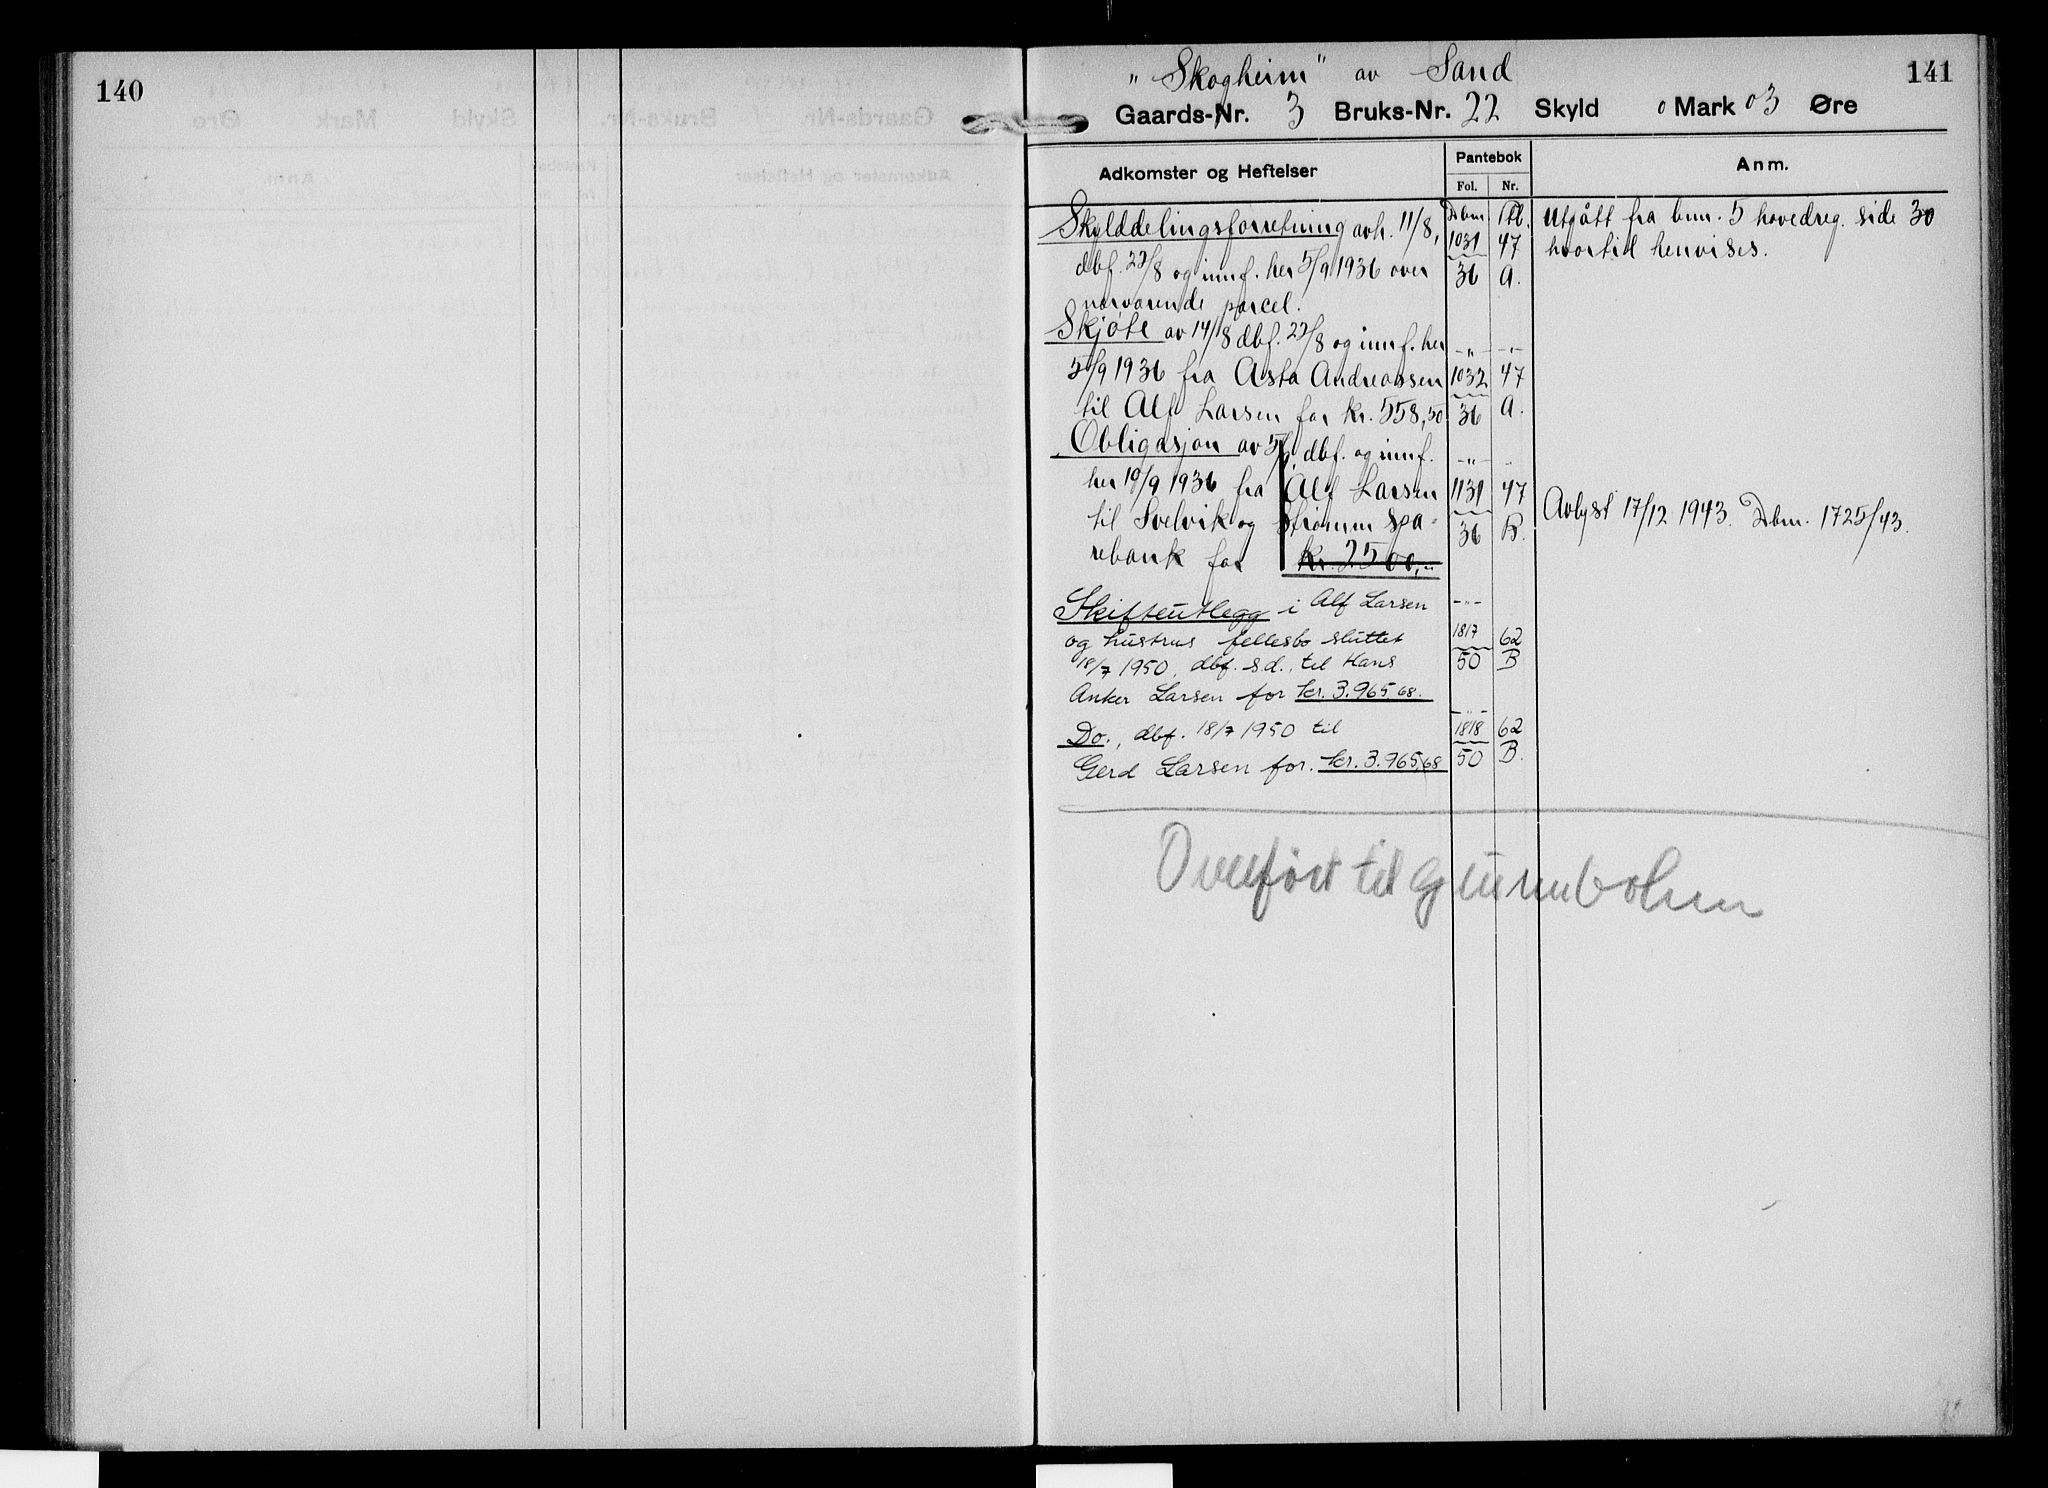 140
141
"Skogheim" av Sand
Gaards-Nr. 3 Bruks-Nr. 22 Skyld 0 Mark 03 Øre
Adkomster og Heftelser Pantebok Anm.
Fol. Nr.
Skylddelingsforretning avh. 11/8, Dbm Pb. Utgått fra bnr. 5 hovedreg. side 30
dbf. 22/8 og innf. her 5/9 1936 over 1031 47 hvortil henvises.
nærværende parcel. 36 A.
Skjøte av 14/8 dbf. 22/8 og innf. her -"- -"-
5/9 1936 fra Asta Andreassen 1032 47
til Alf Larsen for kr. 558,50 36 A.
Obligasjon av 5/9, dbf. og innf. -"-
her 10/9 1936 fra Alf Larsen 1131 47
til Svelvik og Strømm spa- 36 B. Avlyst 17/12 1943. Dbm. 1725/43.
rebank for kr. 2500,-
Skifteutlegg i Alf Larsen -"-
og hustrus fellesbo sluttet 1817 62
18/7 1950, dbf. s.d., til Hans 50 B
Anker Larsen for kr. 3.965,68. -"-
Do., dbf. 18/7 1950 til 1818 62
Gerd Larsen for. kr. 3.965,68 50 B.
Overført til Grunnboken